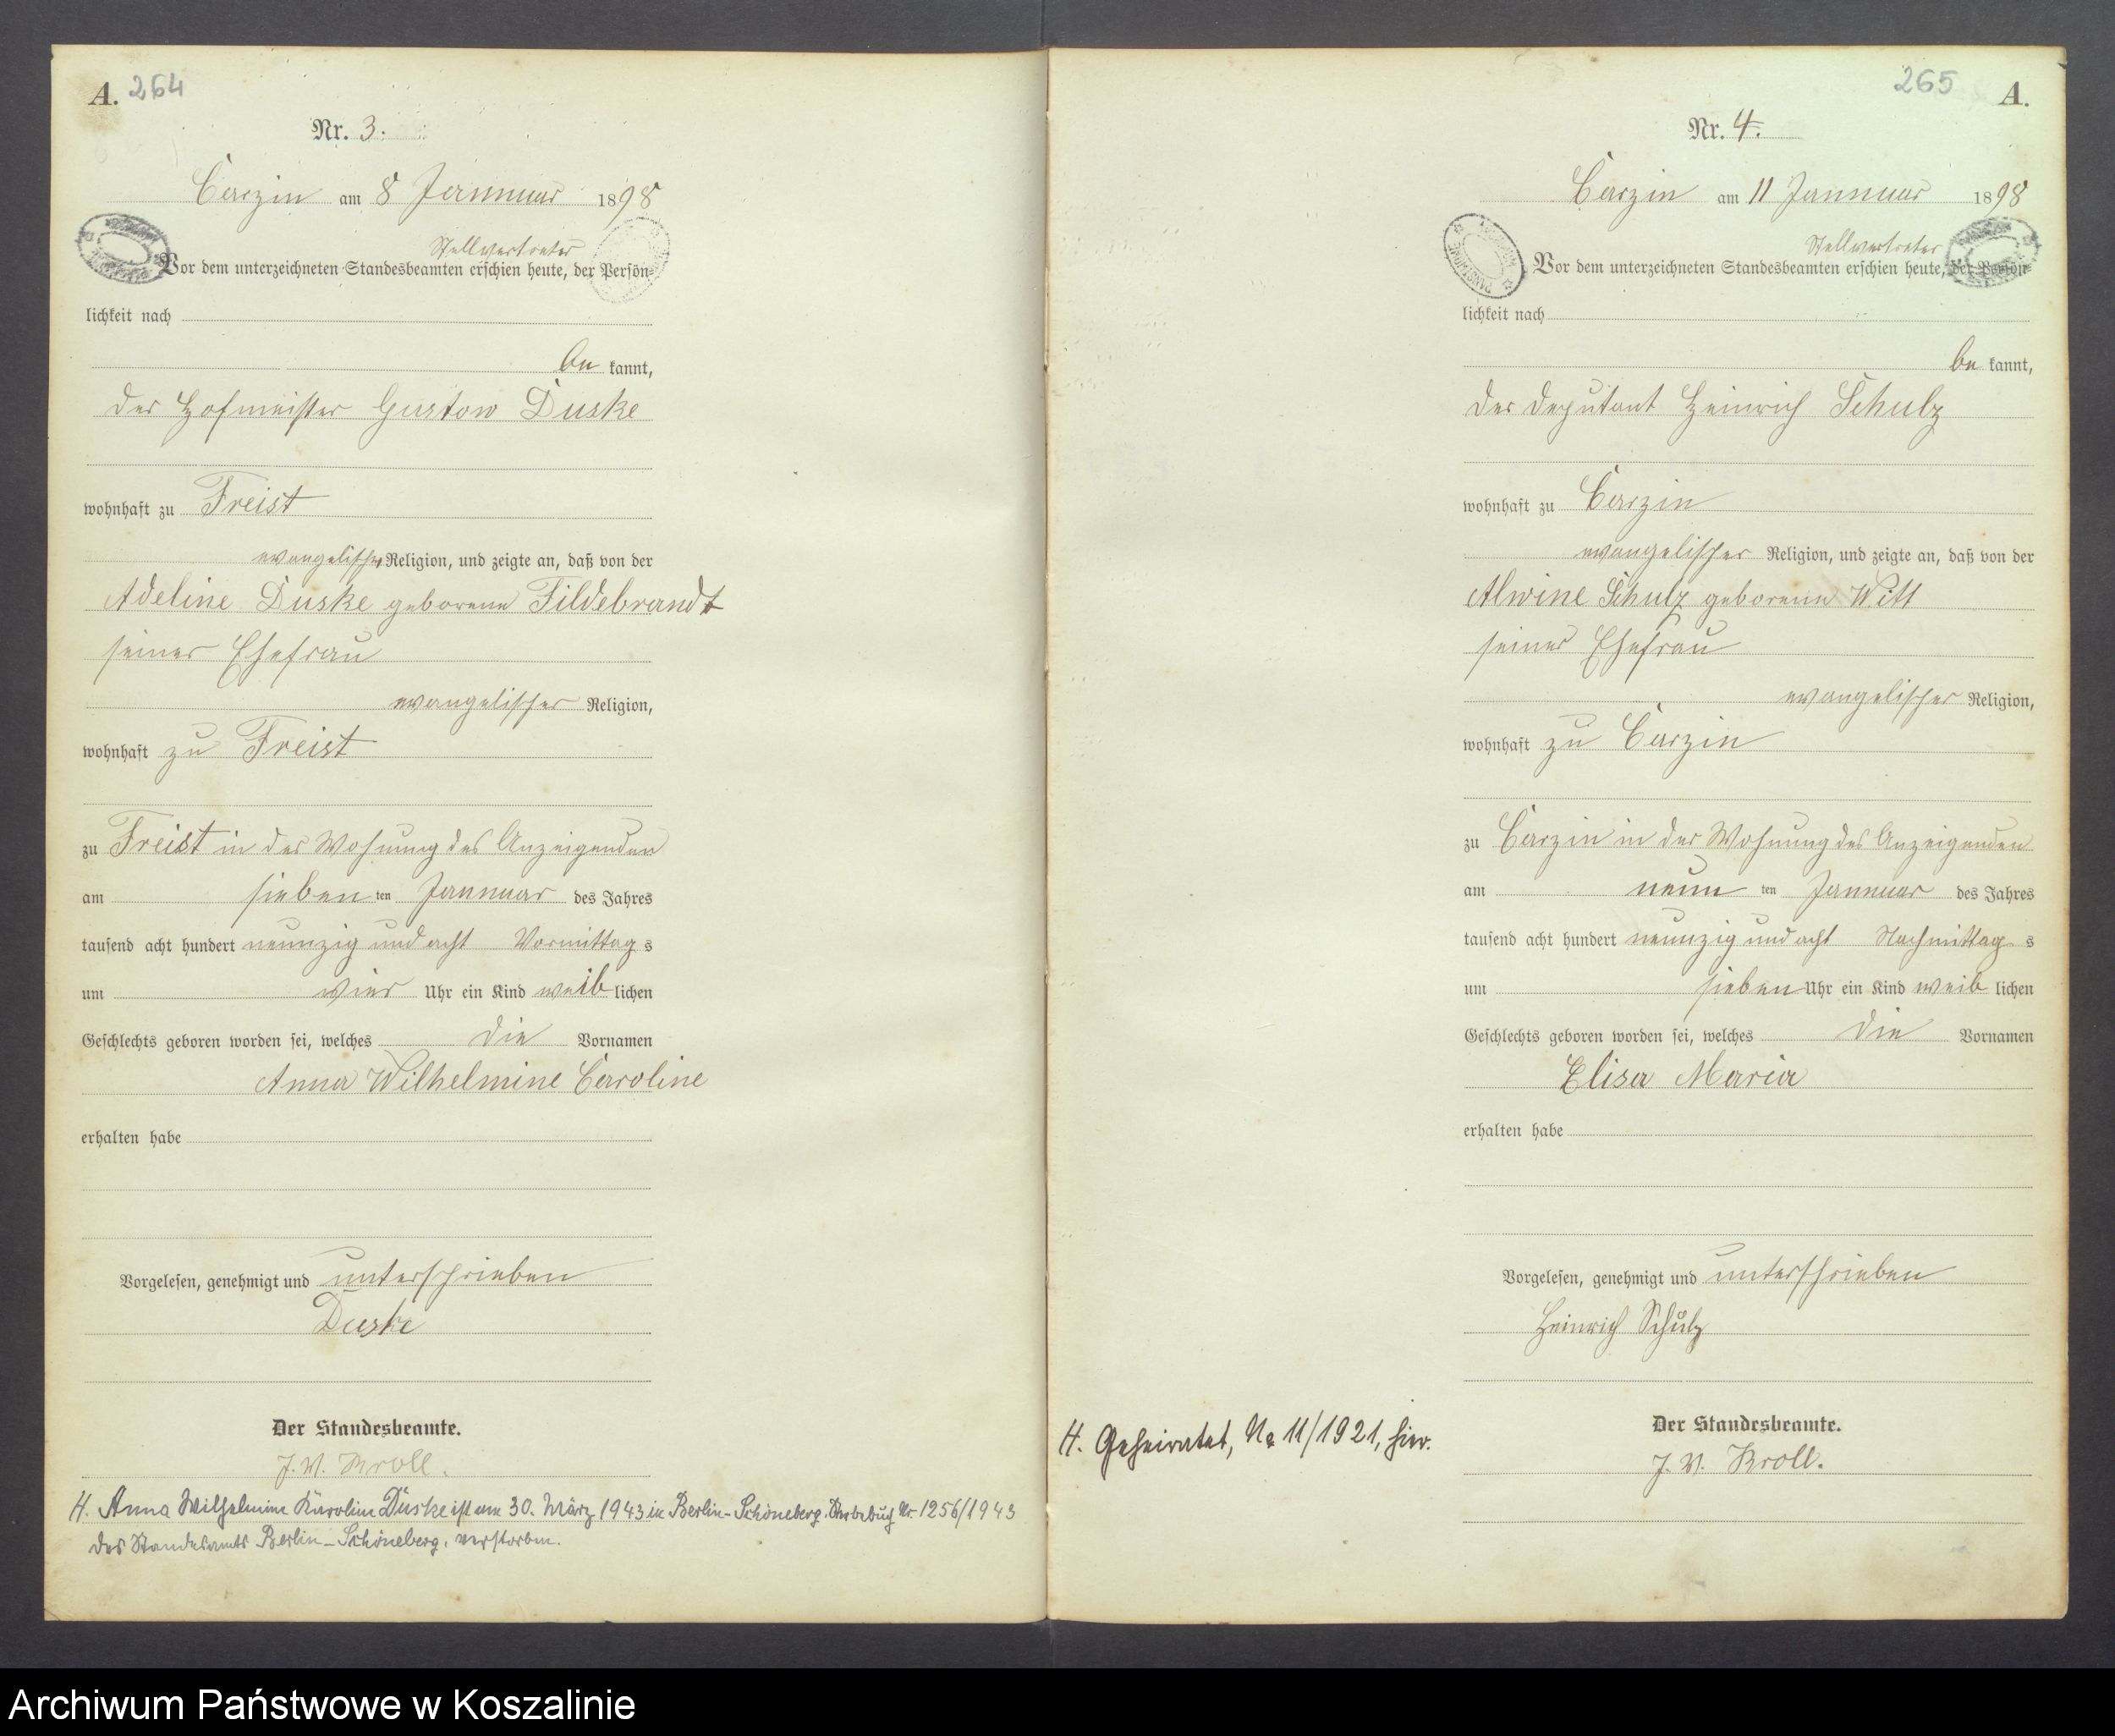 A. 264
Nr. 3.
Carzin am 8 Januar 1898
Stellvertreter
Vor dem unterzeichneten Standesbeamten erschien heute, der Persön-
lichkeit nach
be kannt,
der Hofmeister Gustow Duske
wohnhaft zu Freist
evangelischer Religion, und zeigte an, daß von der
Adeline Duske geborene Fildebrandt
seiner Ehefrau
evangelischer Religion,
wohnhaft zu Freist
zu Freist in der Wohnung des Anzeigenden
am sieben ten Januar des Jahres
tausend acht hundert neunzig und acht Vormittag s
um vier Uhr ein Kind weib lichen
Geschlechts geboren worden sei, welches die Vornamen
Anna Wilhelmine Caroline
erhalten habe
Vorgelesen, genehmigt und unterschrieben
Duske
Der Standesbeamte.
J. V. Kroll.
H. Anna Wilhelmine Karoline Duske ist am 30. März 1943 in Berlin-Schöneberg, Sterbebuch Nr. 1256/1943
des Standesamts Berlin-Schöneberg, verstorben.
265 A.
Nr. 4.
Carzin am 11 Januar 1898
Stellvertreter
Vor dem unterzeichneten Standesbeamten erschien heute, der Persön-
lichkeit nach
be kannt,
der Deputant Heinrich Schulz
wohnhaft zu Carzin
evangelischer Religion, und zeigte an, daß von der
Alwine Schulz geborene Witt
seiner Ehefrau
evangelischer Religion,
wohnhaft zu Carzin
zu Carzin in der Wohnung des Anzeigenden
am neun ten Januar des Jahres
tausend acht hundert neunzig und acht Nachmittag s
um sieben Uhr ein Kind weib lichen
Geschlechts geboren worden sei, welches die Vornamen
Elisa Maria
erhalten habe
Vorgelesen, genehmigt und unterschrieben
Heinrich Schulz
H. Geheiratet, No 11/1921, hier.
Der Standesbeamte.
J. V. Kroll.
Archiwum Państwowe w Koszalinie